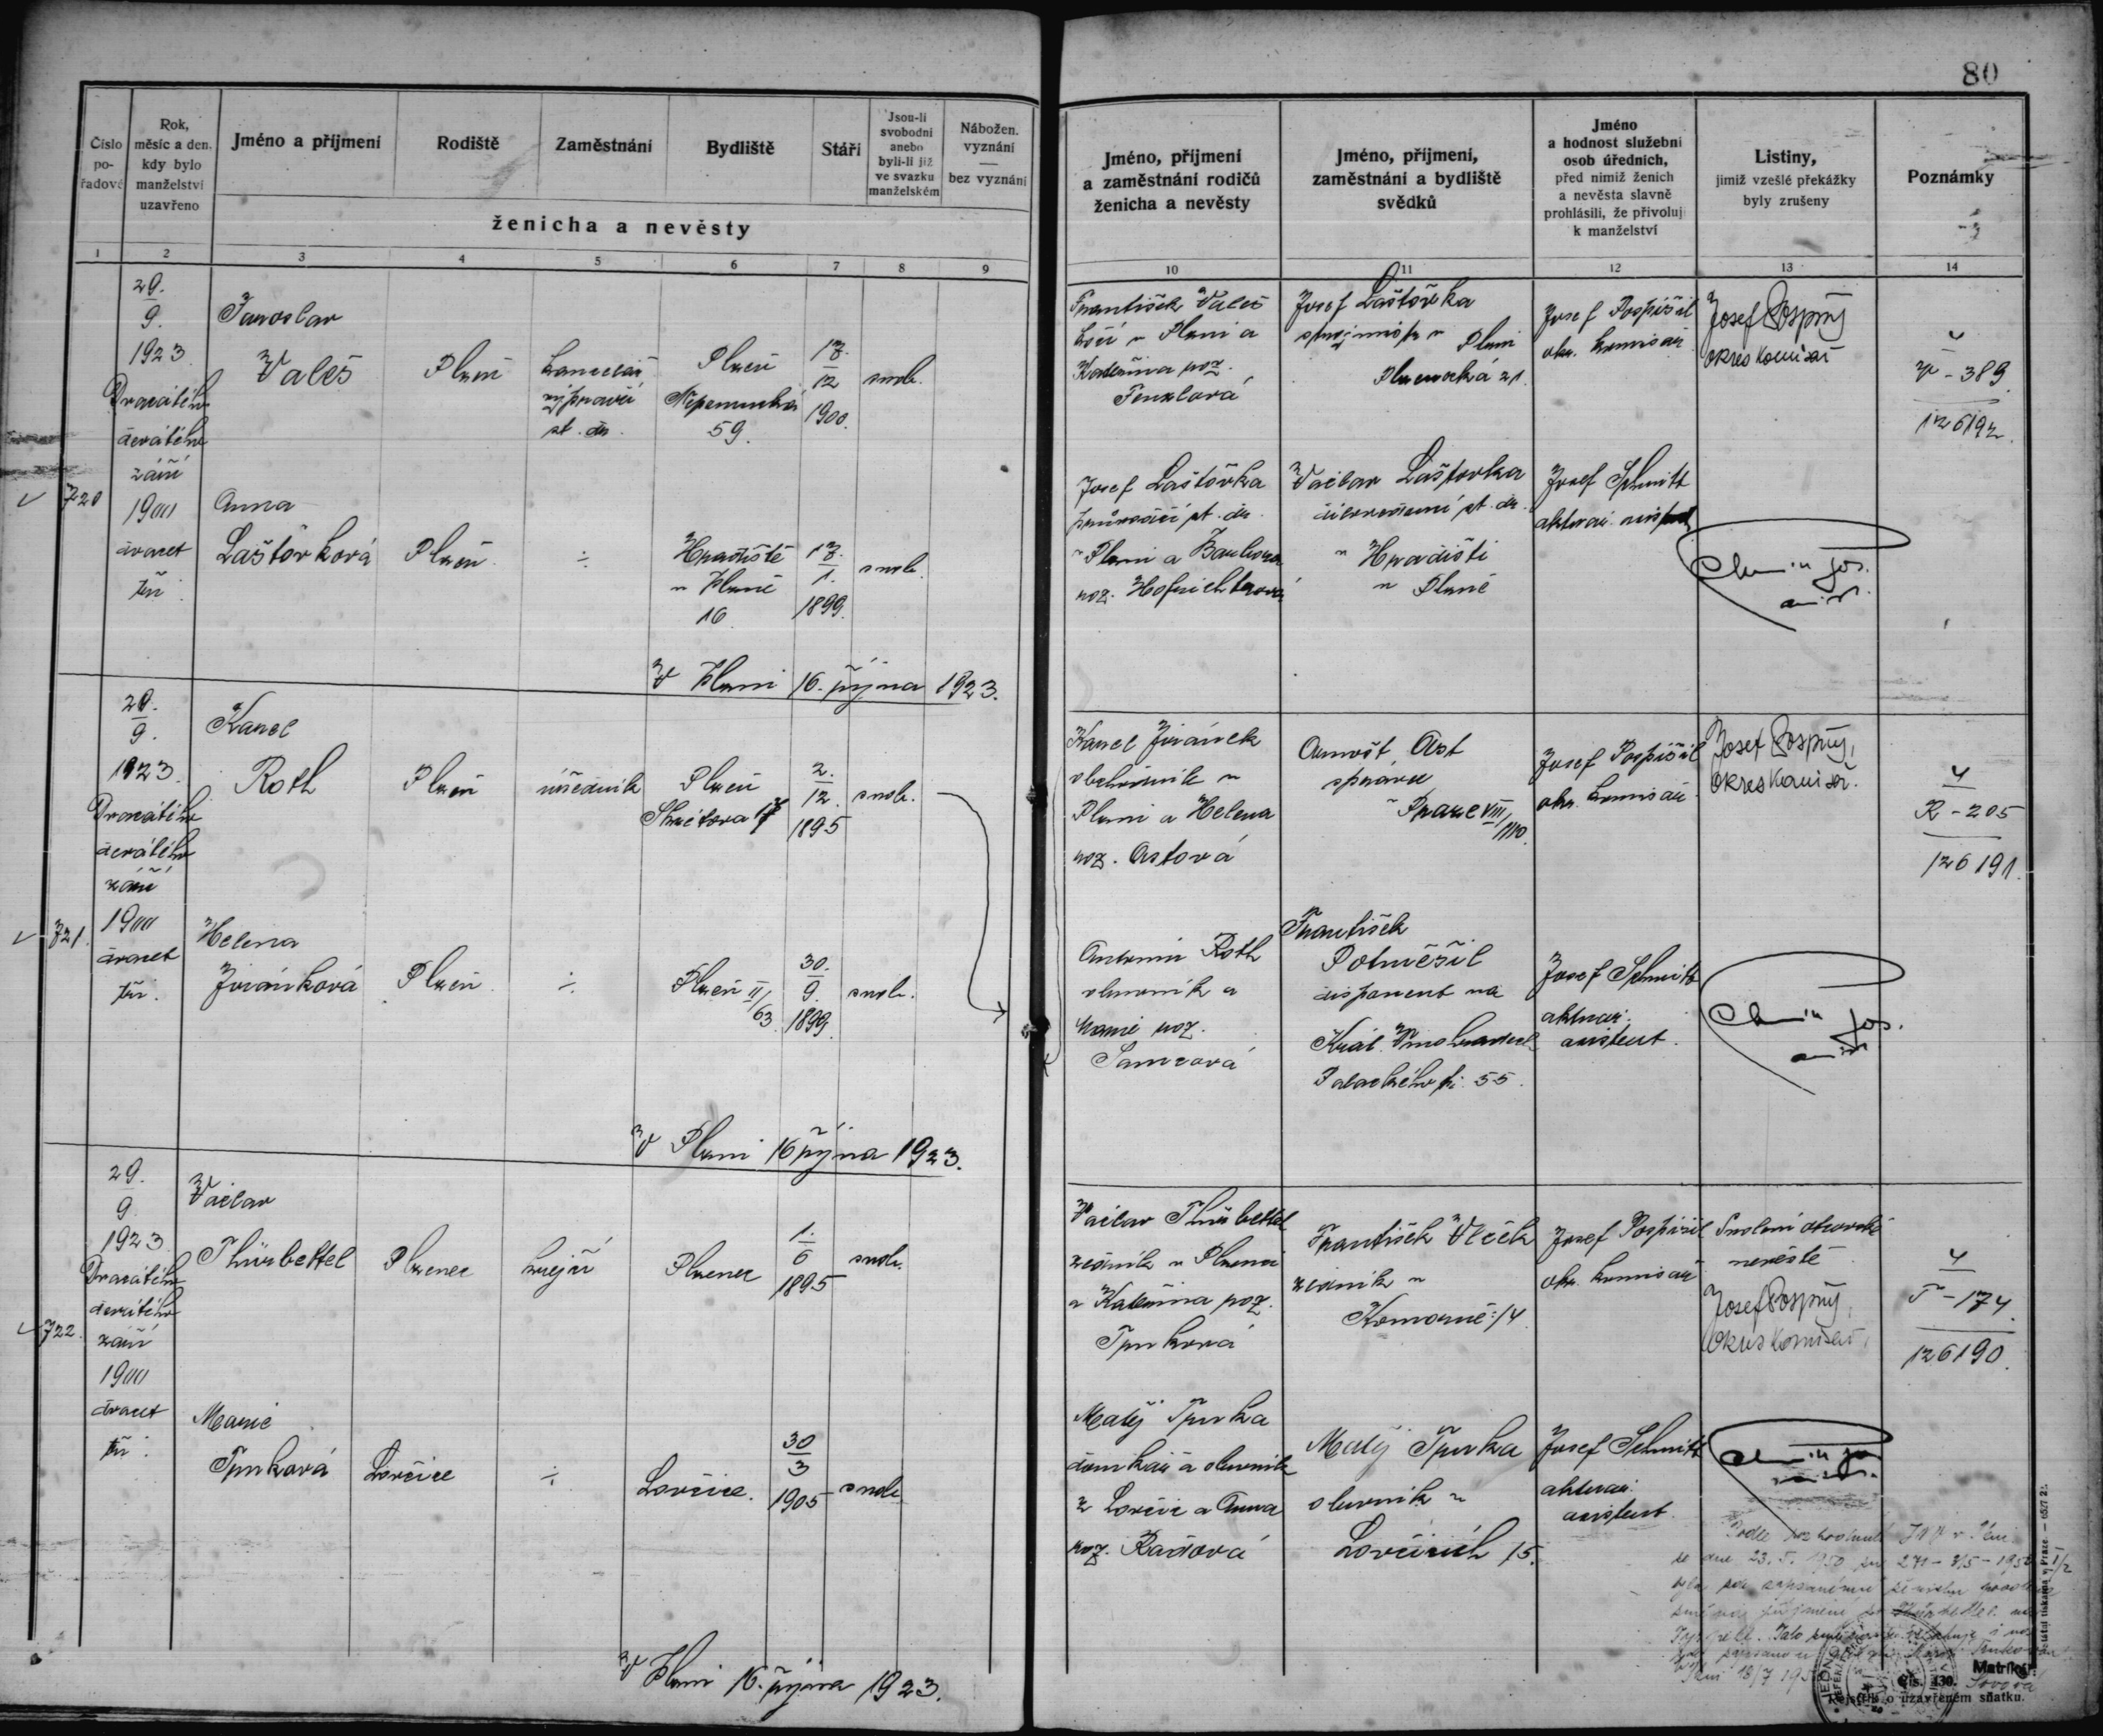 80
Číslo
po-
řadové
Rok,
měsíc a den,
kdy bylo
manželství
uzavřeno
Jméno a příjmení
Rodiště
Zaměstnání
Bydliště
Stáří
Jsou-li
svobodni
anebo
byli-li již
ve svazku
manželském
Nábožen.
vyznání
—
bez vyznání
ženicha a nevěsty
Jméno, příjmení
a zaměstnání rodičů
ženicha a nevěsty
Jméno, příjmení,
zaměstnání a bydliště
svědků
Jméno
a hodnost služební
osob úředních,
před nimiž ženich
a nevěsta slavně
prohlásili, že přivolují
k manželství
Listiny,
jimiž vzešlé překážky
byly zrušeny
Poznámky
1 2 3 4 5 6 7 8 9 10 11 12 13 14
720
29.
9.
1923
Dvacátého
devátého
září
1900
dvacet
tři
Jaroslav
Valeš
Plzeň
kancelář
výpravčí
st. dr.
Plzeň
Nepomucká
59.
17.
12
1900.
svob.
František Valeš
kočí v Plzni a
Kateřina roz.
Fenclová
Josef Laštovka
strojmistr v Plzni
Plzenecká 21.
Josef Pospíšil
okr. komisař
Josef Pospíšil
okres komisař
V-389
126192.
Anna
Laštovková
Plzeň
÷
Hradiště
u Plzně
16
17.
1.
1899.
svob.
Josef Laštovka
průvodčí st. dr.
v Plzni a Barbora
roz. Hofrichterová
Václav Laštovka
st. dr.
v Hradišti
u Plzně
Josef Schmitt
aktuar. asistent
V Plzni 16. října 1923.
721.
29.
9.
1923.
Dvacátého
devátého
září
1900
dvacet
tři.
Karel
Roth
Plzeň
úředník
Plzeň
Skrétova 17
2.
12.
1895
svob.
Karel Jiránek
obchodník v
Plzni a Helena
roz. Astová
Arnošt Ast
správce
v Praze VIII/
1110.
Josef Pospíšil
okr. komisař
Josef Pospíšil,
okres komisař.
4
R-205
126191.
Helena
Jiránková
Plzeň
÷
Plzeň II/
63.
30.
9.
1899.
svob.
Antonín Roth
obuvník a
Marie roz.
Samcová
František
Potměšil
disponent na
Král. Vinohradech
Palackého tř. 55.
Josef Schmitt
aktuar.
asistent.
V Plzni 16 října 1923.
722.
29.
9.
1923
Dvacátého
devátého
září
1900
dvacet
tři.
Václav
Thürbettel
Plzenec
krejčí
Plzenec
1.
6
1895
svob.
Václav Thürbettel
zedník v Plzenci
a Kateřina roz.
Trnková
František Vlček
zedník v
Komorně: 14
Josef Pospíšil
okr. komisař
Svolení otcovské
nevěstě
Josef Pospíšil,
okres komisař,
4
T-174.
126190.
Marie
Trnková
Lovčice
÷
Lovčice.
30
3
1905
svob.
Matěj Trnka
domkář a obuvník
z Lovčic a Anna
roz. Radová
Matěj Trnka
obuvník v
Lovčicích 15.
Josef Schmitt
aktuar.
asistent.
V Plzni 16. října 1923.
Podle rozhodnutí JNV v Plzni
ze dne 23. 5. 1950
Matrika
Čís. 430.
Rejstřík o uzavřeném sňatku.
Státní tiskárna v Praze